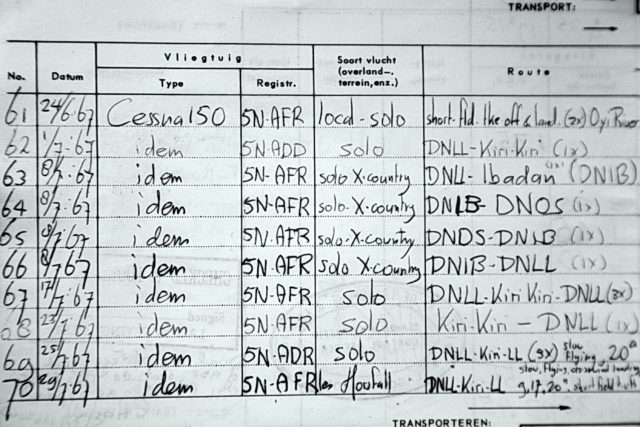 TRANSPORT:
No. Datum Vliegtuig Type Registr. Soort vlucht (overland-, terrein, enz.) Route
61 24/6·67 Cessna 150 5N-AFR local-solo short. fld. tke off & land. (7x) Oyi River
62 1/7·67 idem 5N-ADD solo DNLL-Kiri-Kiri (1x)
63 8/7·67 idem 5N-AFR solo X-country DNLL-Ibadan (1x) (DNIB)
64 8/7·67 idem 5N-AFR solo-X-country DNIB-DNOS (1x)
65 8/7·67 idem 5N-AFR solo-X-country DNOS-DNIB (1x)
66 8/7 67 idem 5N-AFR solo X-country DNIB-DNLL (1x)
67 17/7·67 idem 5N-AFR solo DNLL-Kiri Kiri-DNLL (3x)
68 23/7·67 idem 5N-AFR solo Kiri-Kiri - DNLL (1x)
69 25/7·67 idem 5N-ADR solo DNLL-Kiri-LL (9x) slow flying, 20°
70 29/7·67 idem 5N-AFR DNLL-Kiri-LL slow, flying, 9, 17, 20° short field
TRANSPORTEREN: